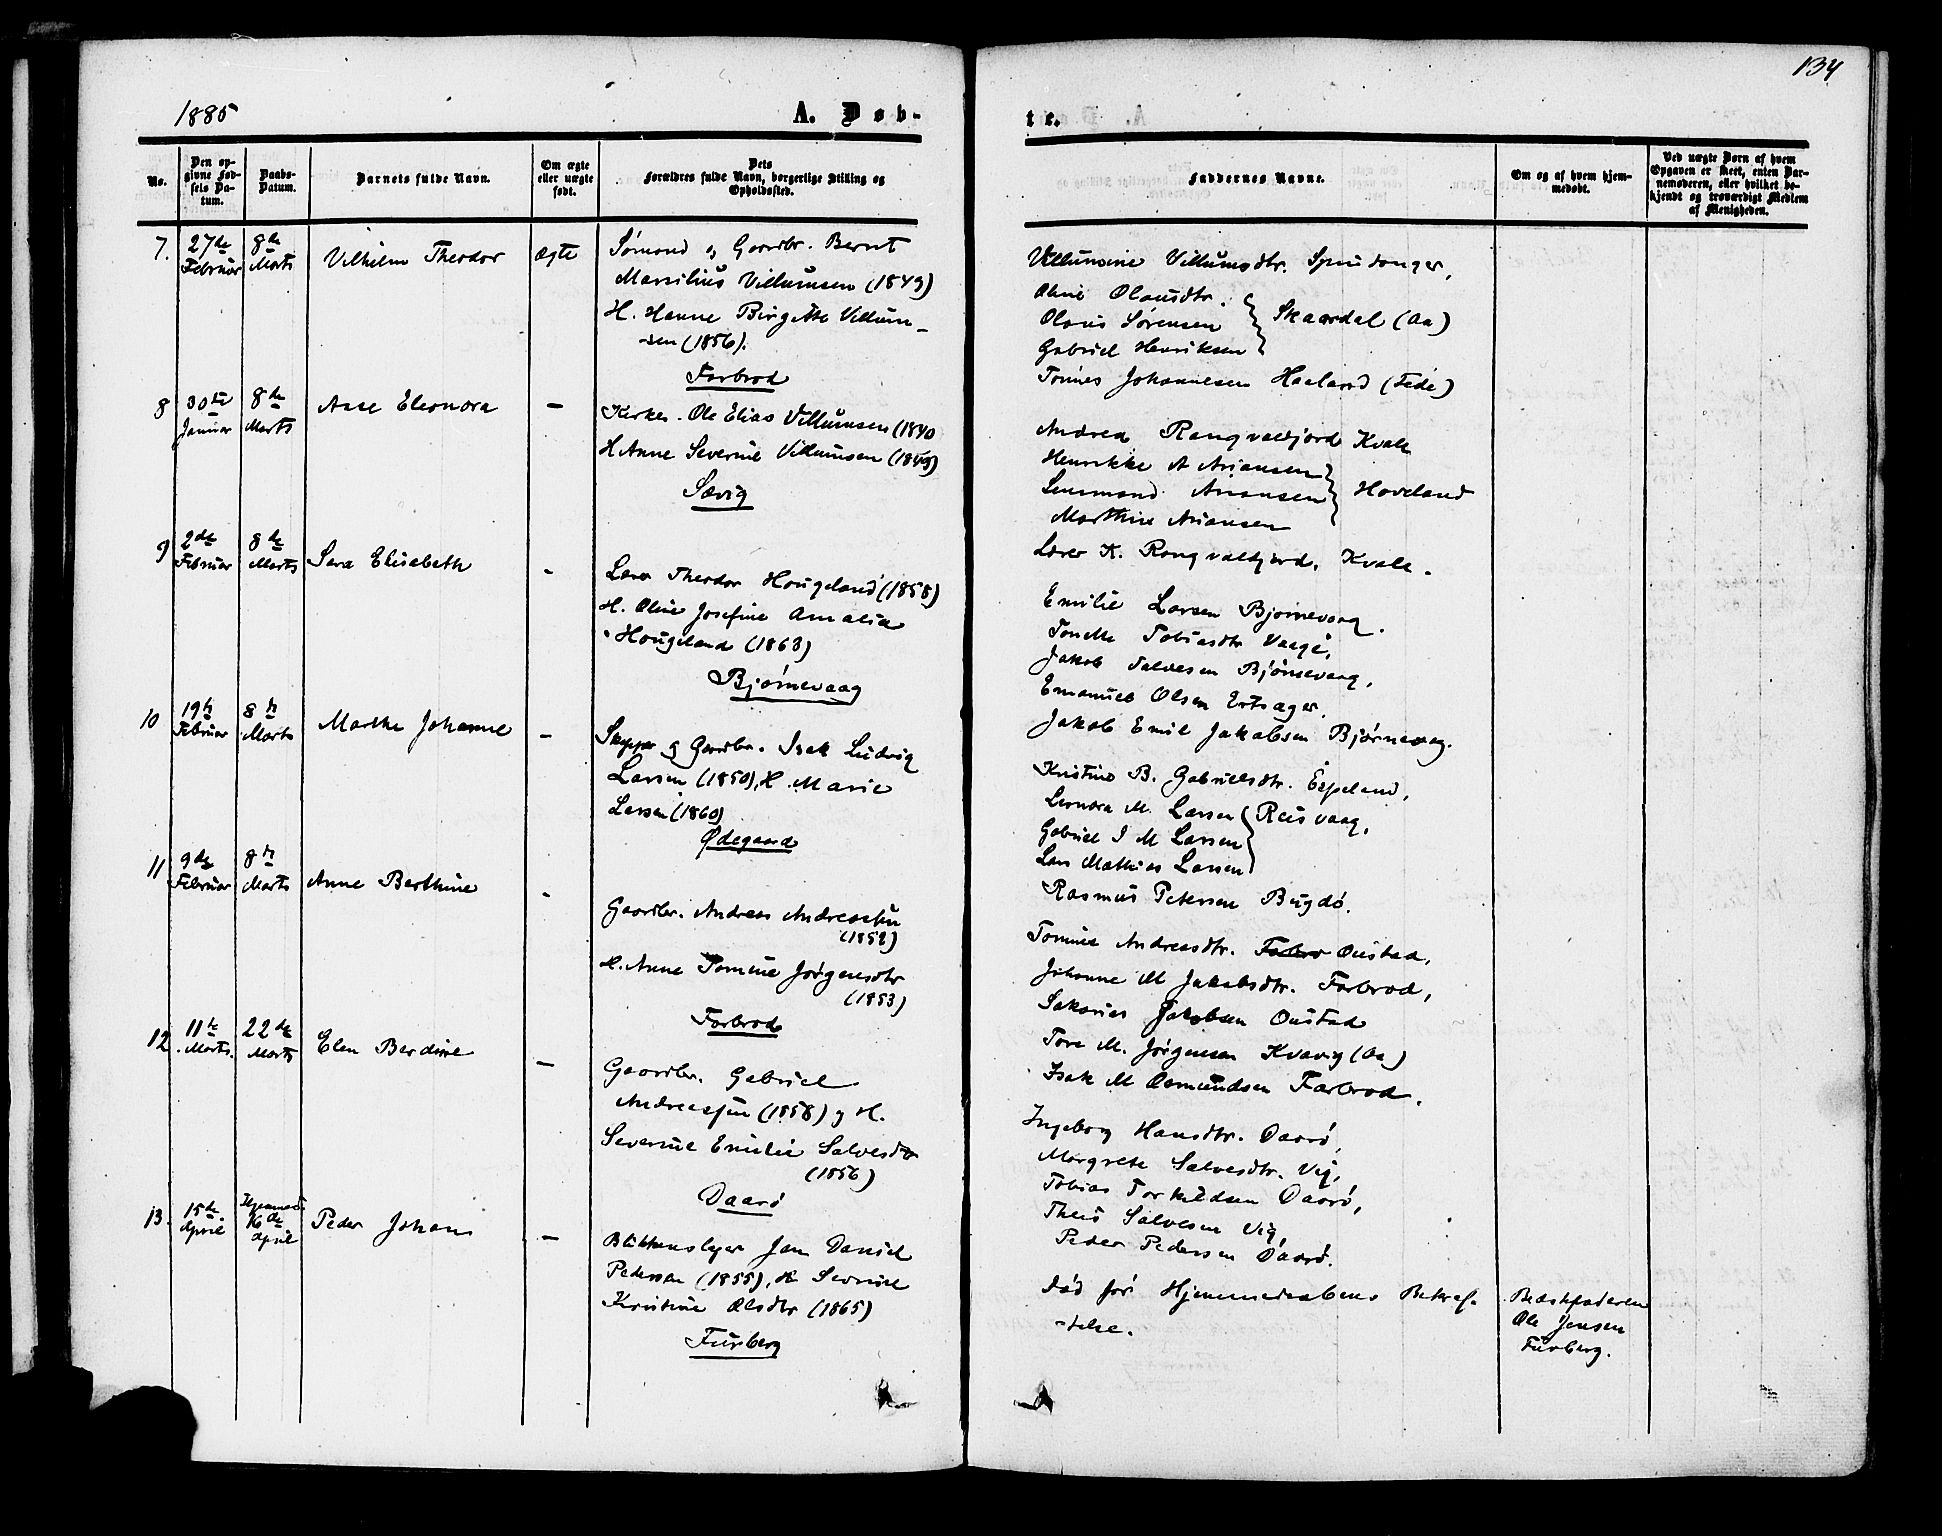 134
1885
A. Døb-
te.
No.
Den op-
givne Fød-
sels Da-
tum.
Daabs-
Datum.
Barnets fulde Navn.
Om ægte
eller uægte
født.
Dets
Forældres fulde Navn, borgerlige Stilling og
Opholdssted.
Faddernes Navne.
Om og af hvem hjem-
medøbt.
Ved uægte Børn af hvem
Opgaven er skeet, enten Bar-
nemoderen, eller hvilket be-
kjendt og troværdigt Medlem
af Menigheden.
7.
27de
Februar
8de
Marts
Vilhelm Theodor
Ægte
Sømand og Gaardbr. Bernt
Marsilius Villumsen (1849)
H. Hanne Birgitte Villum-
sen (1856).
Farbrod
Villumine Villumsdtr.
Oline Olausdtr.
Olaus Sørensen
Gabriel Henriksen
Skaardal (Aa)
Tønnes Johannesen Haaland (Fede)
8
30te
Januar
8de
Marts
Aase Eleonora
–
Kirkes. Ole Elias Villumsen (1840
H. Anne Severine Villumsen (1849)
Sævig
Andrea Rangvaldfjord Kvale
Henrikke A Ariansen
Lensmand Arians​en
Marthine Arians​en
Haveland
9
2de
Februar
8de
Marts
Sara Elisabeth
-
Lærer K. Rangvaldfjord, Kvale.
Lærer Theodor Hougeland (1858)
H. Oline Josefine Amalia
Hougeland (1863)
Bjørnevaag
Emilie Larsen Bjørnevaag.
Tonette Tobiasdtr Vaage,
Jakob Salvesen Bjørnevaag,
Emanuel Olsen
Jakob Emil Jakobsen Bjørnevaag.
10
19de
Februar
8de
Marts
Marthe Johanne
–
Skipper og Gaardbr. Isak Ludvig
Larsen (1850), H. Marie
Larsen (1860)
Ødegaard
Kristine B. Gabrielsdtr. Espeland,
Lenora M. Larsen
Gabriel I M Larsen
Lars Mathias Larsen
Reisvaag,
Rasmus Petersen Bugdø.
11
9de
Februar
8de
Marts
Anne Berthine
-
Gaardbr. Andreas Andreassen
(1852)
H. Anne Tomine Jørgensdtr
(1853)
Farbrod
Tomine Andreasdtr. Farbro Oustad,
Johanne M Jakobsdtr. Farbrod,
Sakarias Jakobsen Oustad
Tore M. Jørgensen Kvavig (Aa)
Isak M Osmundsen Farbrod.
12
11te
Marts.
22de
Marts
Elen Berdine
–
Gaardbr. Gabriel
Andreassen (1858) og H.
Severine Emilie Salvesdtr
(1856)
Daarø
Ingeborg Hansdtr. Daarø,
Margrete Salvesdtr. Vig,
Tobias Torkildsen Daarø,
Theis Salvesen Vig,
Peder Pedersen Daarø.
13.
15de
April
Hjemmed.
16de
April
Peder Johan
–
Blikkenslager Jan Daniel
Pedersen (1855), H. Severine
Kristine Olsdtr (1865)
Furberg
Død før Hjemmedaabens Bekræf-
telse.
Bedstefaderen
Ole Jensen
Furberg.